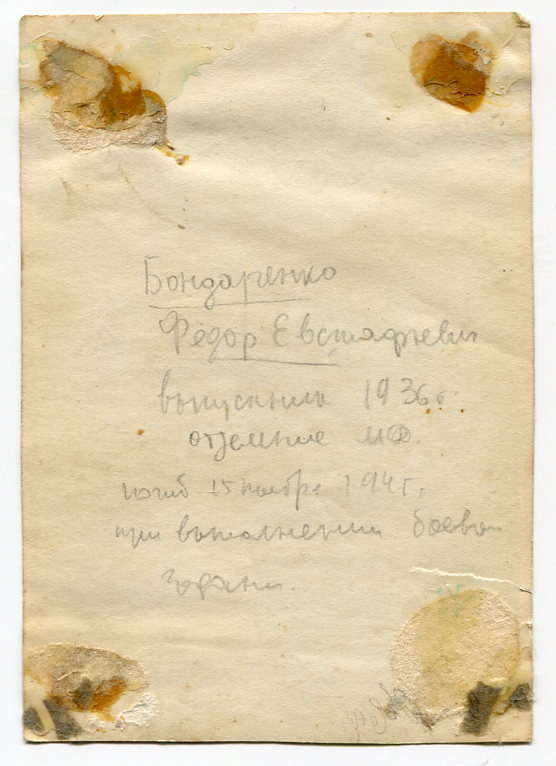 Бондаренко
Фёдор Евстафиевич
выпускник 1936 г.
отделение МФ.
погиб 15 ноября 1941 г.
при выполнении боевой
задачи.